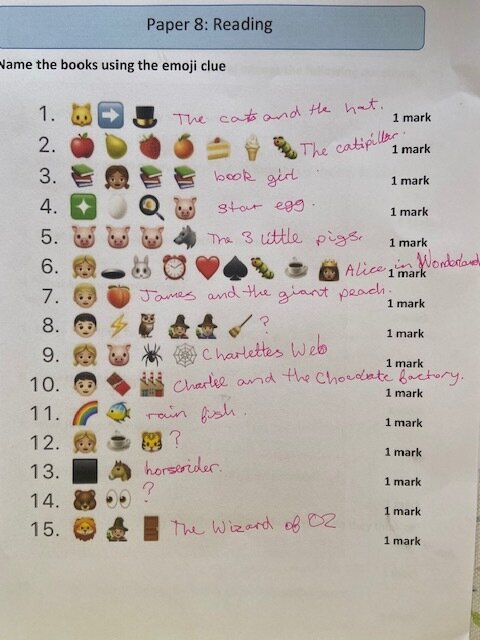 Paper 8: Reading
Name the books using the emoji clue
1. The cats and the hat. 1 mark
2. The catipiller. 1 mark
3. book girl 1 mark
4. star egg. 1 mark
5. The 3 little pigs. 1 mark
6. Alice in Wonderland 1 mark
7. James and the giant peach. 1 mark
8. ? 1 mark
9. Charlettes Web 1 mark
10. Charlee and the Chocolate factory. 1 mark
11. rain fish. 1 mark
12. ? 1 mark
13. horserider. 1 mark
14. ? 1 mark
15. The Wizard of OZ 1 mark